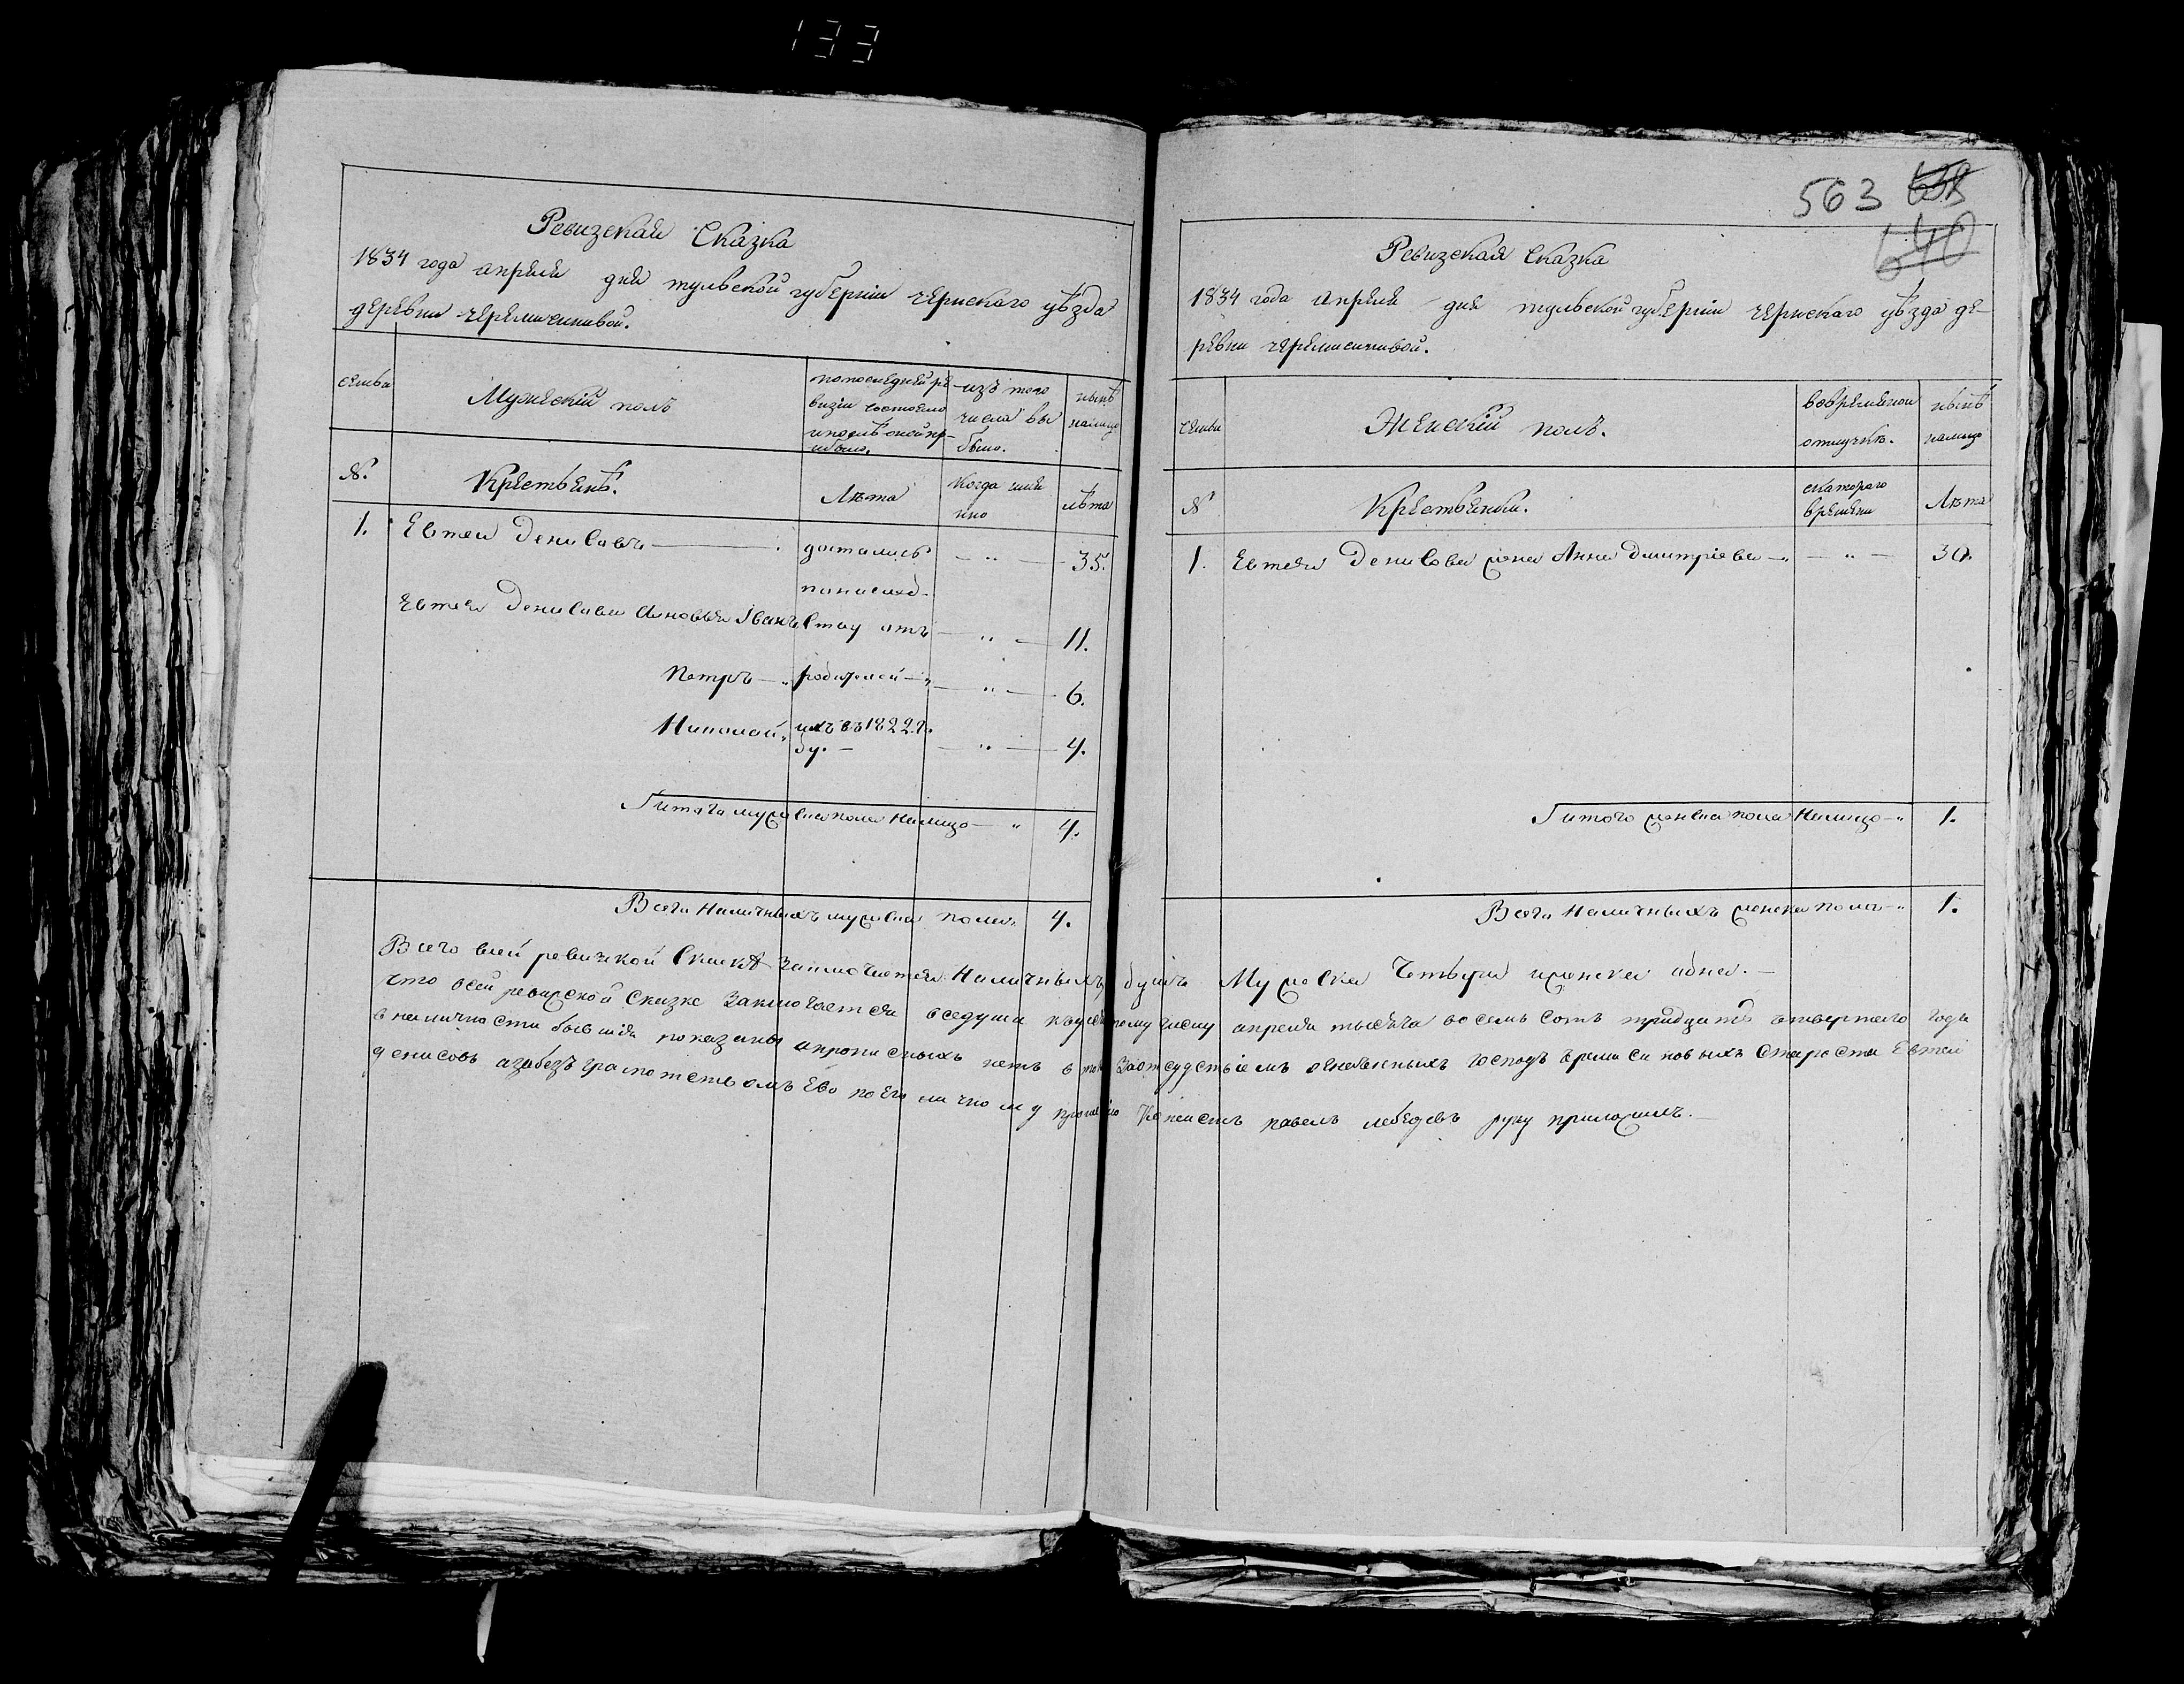 133
563 638
640
Ревизская Сказка
1834 года апреля дня тульской губерніи чернскаго уѣзда
деревни черемисиновой.
семьи
Мужескій полъ
попоследней ре
визіи состояло
ипослѣ оной пр-
ибыло.
изъ того
числа вы
было.
нынѣ
налицо
№.
Крестьянѣ.
Лѣта
Когда имян
но
лѣта
1. Евтей Денисовъ — достались — „ — 35.
понаслед-
Евтея Денисова сыновья Іванъ ству отъ — „ — 11.
Петръ — „ родителей — „ — „ — 6.
Николай „ ихъ въ 1822 г.
ду. — — „ — 4.
Іитого мужеска пола Налицо — „ 4.
Всего Наличныхъ мужеска пола „ 4.
Ревизская Сказка
1834 года апреля дня тульской губерніи чернскаго уѣзда де-
ревни черемисиновой.
семьи
Женскій полъ.
вовременной
отлучкѣ.
нынѣ
налицо
№
Крестьянки.
скотораго
времени
Лѣта
1. Евтея Денисова жена Анна Дмитріева — „ — „ — 30.
Іитого женска пола Налицо — „ 1.
Всего Наличныхъ женска пола — „ 1.
Всего всей ревизкой Сказкѣ Заключается Наличныхъ душъ Мужеска Четыри иженска адна. —
что всей ревизской Сказке Заключается вседуши апреля тысеча восемь сотъ тридцать четвертаго года
вналичности бывшія показаны ипрописныхъ нетъ втомъ Заотсудствіемъ господъ Старости Евтей
денисовъ азабезъграмотствомъ Ево поего личному прошенію Копеистъ павелъ лебедевъ руку приложилъ. —